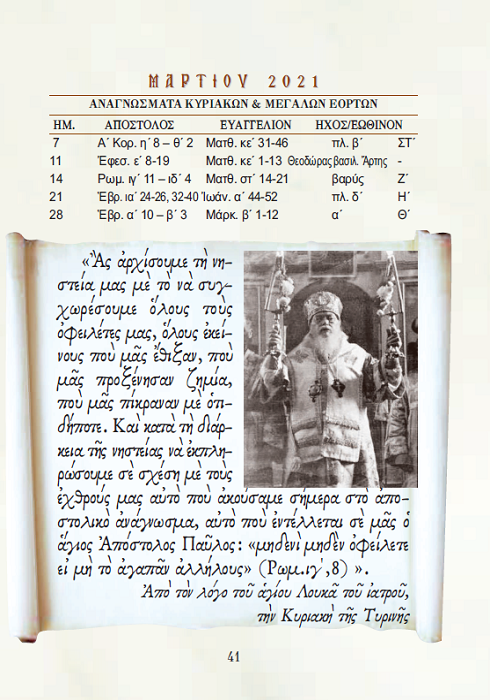 ΜΑΡΤΙΟΥ 2021
ΑΝΑΓΝΩΣΜΑΤΑ ΚΥΡΙΑΚΩΝ & ΜΕΓΑΛΩΝ ΕΟΡΤΩΝ
ΗΜ. ΑΠΟΣΤΟΛΟΣ ΕΥΑΓΓΕΛΙΟΝ ΗΧΟΣ/ΕΩΘΙΝΟΝ
7 Α΄ Κορ. η΄ 8 – θ΄ 2 Ματθ. κε΄ 31-46 πλ. β΄ ΣΤ΄
11 Ἐφεσ. ε΄ 8-19 Ματθ. κε΄ 1-13 Θεοδώρας βασιλ. Ἄρτης -
14 Ρωμ. ιγ΄ 11 – ιδ΄ 4 Ματθ. στ΄ 14-21 βαρύς Ζ΄
21 Ἑβρ. ια΄ 24-26, 32-40 Ἰωάν. α΄ 44-52 πλ. δ΄ Η΄
28 Ἑβρ. α΄ 10 – β΄ 3 Μάρκ. β΄ 1-12 α΄ Θ΄
«Ἄς ἀρχίσουμε τὴ νη-
στεία μας μὲ τὸ νὰ συγ-
χωρέσουμε ὅλους τοὺς
ὀφειλέτες μας, ὅλους ἐκεί-
νους ποὺ μᾶς ἔθιξαν, ποὺ
μᾶς προξένησαν ζημία,
ποὺ μᾶς πίκραναν μὲ ὁτι-
δήποτε. Καὶ κατὰ τὴ διάρ-
κεια τῆς νηστείας νὰ ἐκπλη-
ρώσουμε σὲ σχέση μὲ τοὺς
ἐχθρούς μας αὐτὸ ποὺ ἀκούσαμε σήμερα στὸ ἀπο-
στολικὸ ἀνάγνωσμα, αὐτὸ ποὺ ἐντέλλεται σὲ μᾶς ὁ
ἅγιος Ἀπόστολος Παῦλος: «μηδενὶ μηδὲν ὀφείλετε
εἰ μὴ τὸ ἀγαπᾶν ἀλλήλους» (Ρωμ.ιγ΄,8) ».
Ἀπὸ τὸν λόγο τοῦ ἁγίου Λουκᾶ τοῦ ἰατροῦ,
τὴν Κυριακὴ τῆς Τυρινῆς
41